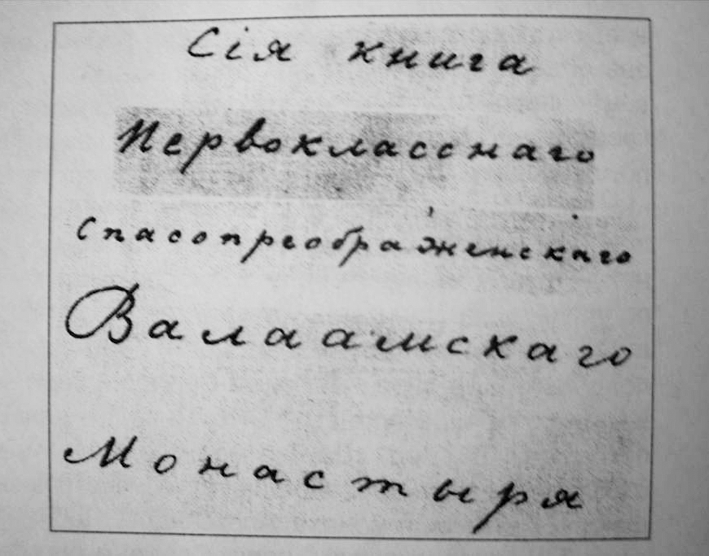 Сія книга
Первокласснаго
спасопреображенскаго
Валаамскаго
Монастыря